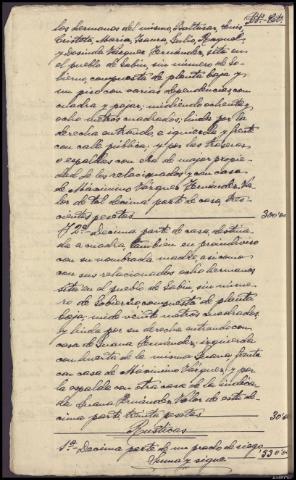 los hermanos del mismo Baltasar, Luis,
Maria, Juana, Julia, Manuel
y Vazquez Fernández, sita en
el pueblo de Sabin, sin número de Go-
bierno, compuesta de planta baja y
un piso con varias dependencias, con
cuadra y pajar, midiendo ochenta y
ocho metros cuadrados; linda por la
derecha entrando, e izquierda y frente
con calle pública, y por las traseras
o espaldas con otra de mayor propie-
dad de los relacionados y con casa
de Maximino Vázquez Fernández. Va-
lor de tal décima parte de casa, tres-
cientas pesetas 300'00
2ª Décima parte de casa destina-
da a cuadra, también en proindiviso
con su nombrada madre, asi como
con sus relacionados ocho hermanos
sita en el pueblo de Sabin, sin núme-
ro de Gobierno, compuesta de planta
baja, mide veinte metros cuadrados,
y linda por su derecha entrando con
casa de Juana Fernández, izquierda
con huerta de la misma Juana, frente
con casa de Maximino Vázquez, y por
la espalda con otra casa de la
Juana Fernández. Valor de esta dé-
cima parte, treinta pesetas 30'00
Rústicas
1ª Décima parte de un prado de riego
Suma y sigue 330'00